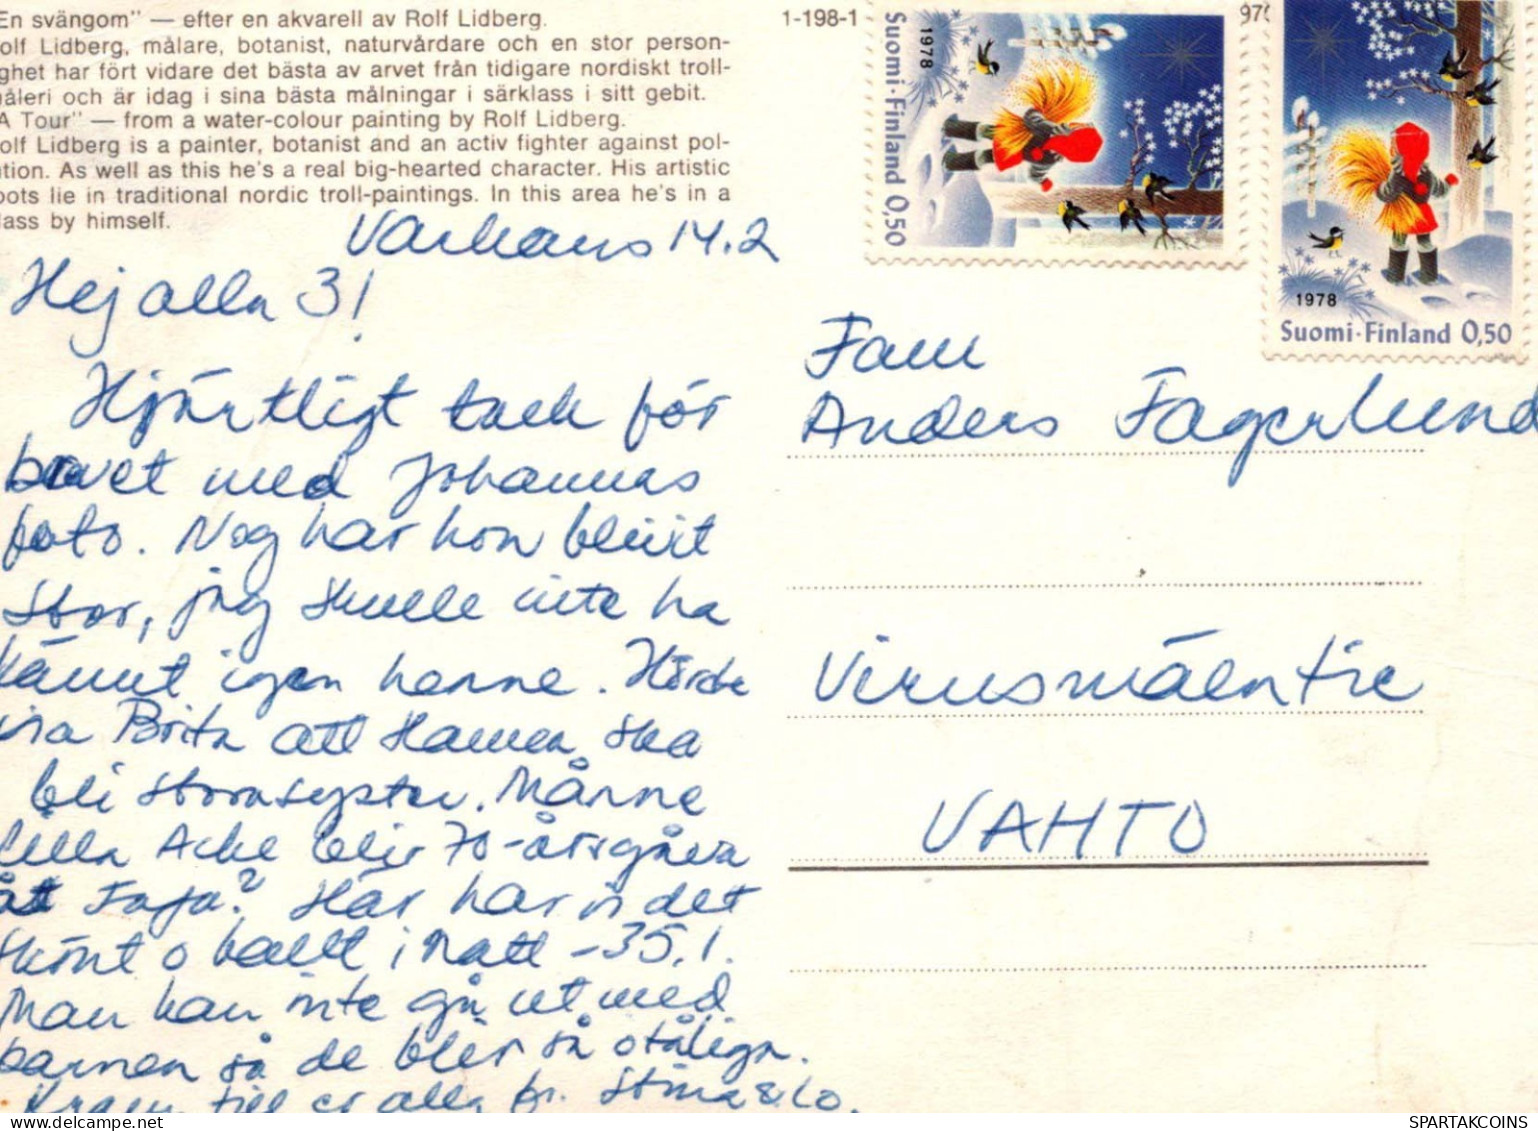 En svängom" — efter en akvarell av Rolf Lidberg.
olf Lidberg, målare, botanist, naturvårdare och en stor person-
ghet har fört vidare det bästa av arvet från tidigare nordiskt troll-
åleri och är idag i sina bästa målningar i särklass i sitt gebit.
A Tour" — from a water-colour painting by Rolf Lidberg.
olf Lidberg is a painter, botanist and an activ fighter against pol-
ution. As well as this he's a real big-hearted character. His artistic
oots lie in traditional nordic troll-paintings. In this area he's in a
lass by himself.
1-198-1
1978
Suomi·Finland 0,50
1978
Suomi·Finland 0,50
Varkaus 14.2
Hej alla 3!
Hjärtligt tack för
brevet med Johannas
foto. Nog har hon blivit
stor, jag skulle inte ha
känt igen henne. Hörde
Brita att Hannen ska
bli storasyster. Månne
lilla Acke blir 70-årsgåva
åt Fafa? Här har vi det
skönt o kallt i natt -35.1.
Man kan inte gå ut med
barnen så de blir så otåliga.
Kram till er alla fr. Stina & Co.
Fam
Anders Fagerlund
Virusmäentie
VAHTO
SPARTAKCOINS